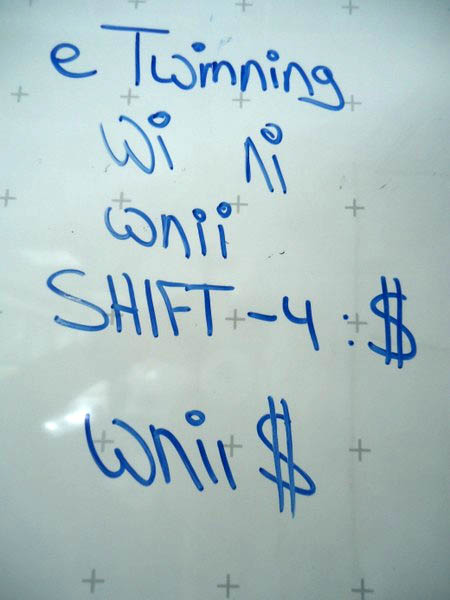 e Twinning
wi ni
wnii
SHIFT-4 : $
wnii $